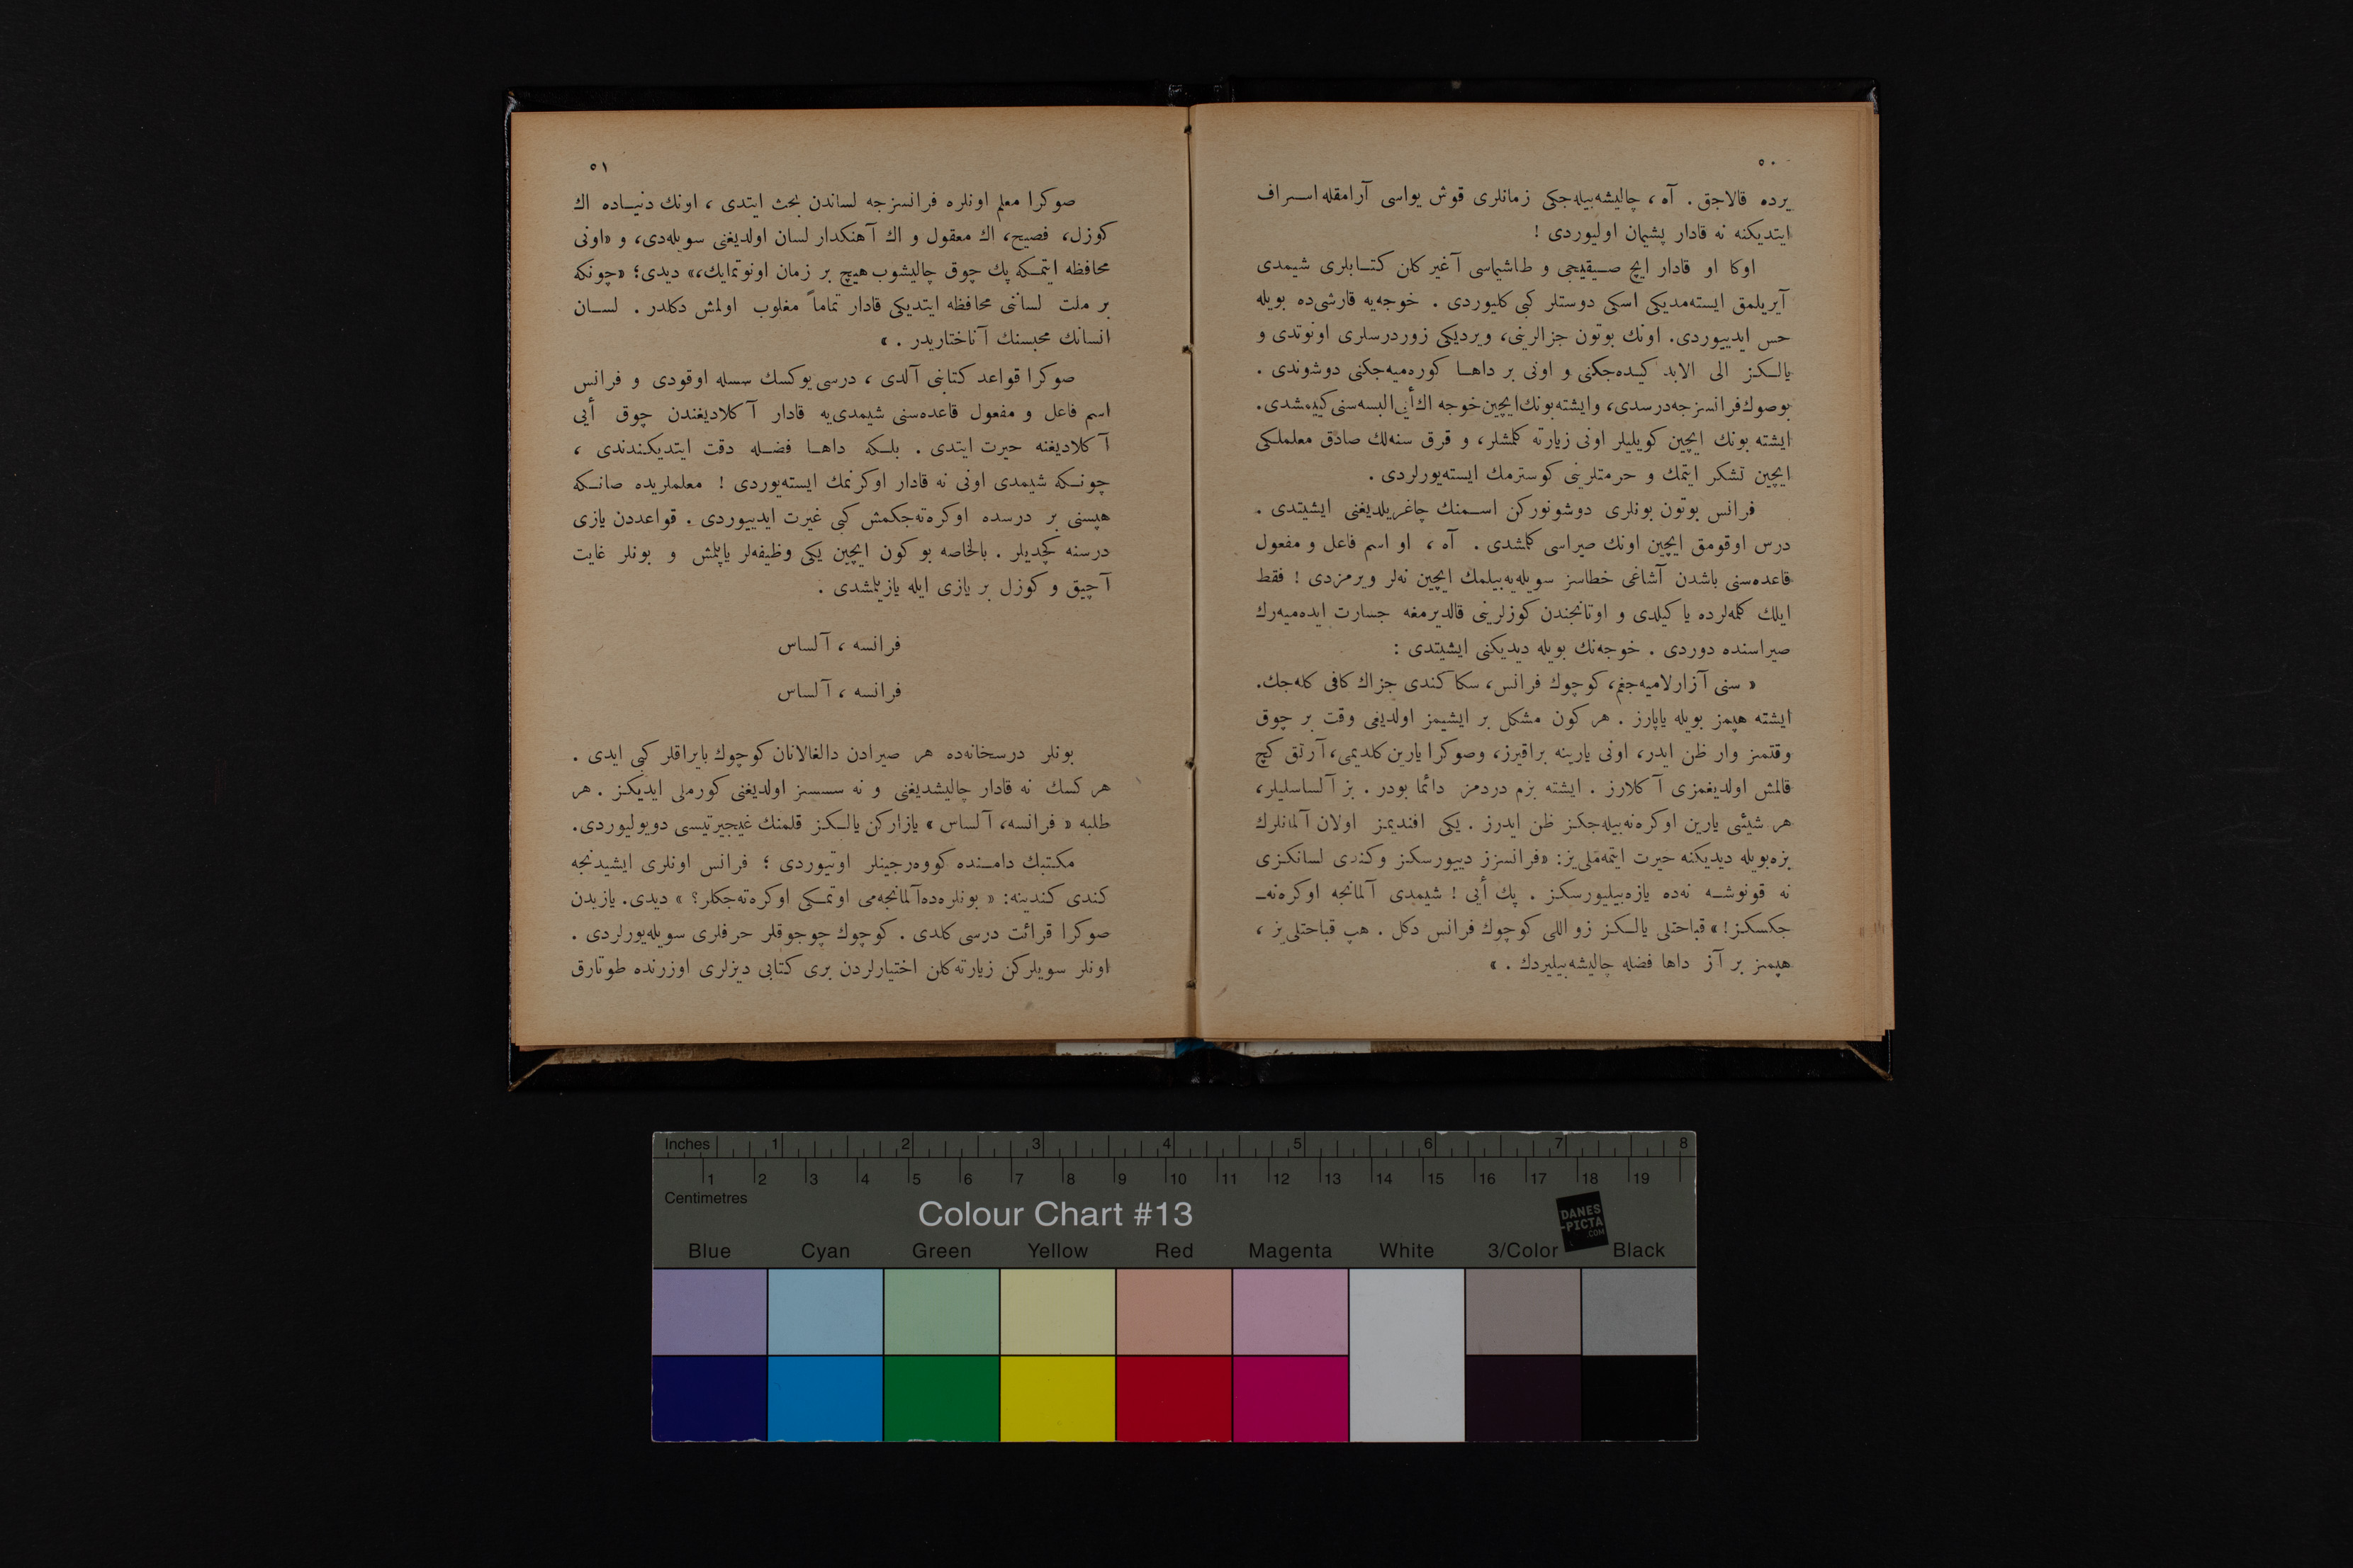 ٥٠
یرده قالاجق . آه ، چالیشه‌بیله‌جکی زمانلری قوش یواسی آرامقله اسراف
ایتدیکنه نه قادار پشیمان اولیوردی !
اوکا او قادار ایچ صیقیجی و طاشیماسی آغیر کلن کتابلری شیمدی
آیریلمق ایسته‌مدیکی اسکی دوستلر کبی کلیوردی . خوجه‌یه قارشی‌ده بویله
حس ایدییوردی. اونك بوتون جزالرینی، ویردیکی زور درسلری اونوتدی و
یالکز الی الابد کیده‌جکنی و اونی بر داها کوره‌میه‌جکنی دوشوندی .
بوصوك فرانسزجه‌درسدی، وایشته بونك ایچین خوجه اك أیی البسه‌سنی کییمشدی.
ایشته بونك ایچین کویلیلر اونی زیارته کلمشلر، و قرق سنه‌لك صادق معلملکی
ایچین تشکر ایتمك و حرمتلرینی کوسترمك ایسته‌یورلردی .
فرانس بوتون بونلری دوشونورکن اسمنك چاغریلدیغنی ایشیتدی .
درس اوقومق ایچین اونك صیراسی کلمشدی . آه ، او اسم فاعل و مفعول
قاعده‌سنی باشدن آشاغی خطاسز سویله‌یه‌بیلمك ایچین نه‌لر ویرمزدی ! فقط
ایلك کلمه‌لرده یاکیلدی و اوتانجندن کوزلرینی قالدیرمغه جسارت ایده‌میه‌رك
صیراسنده دوردی . خوجه‌نك بویله دیدیکنی ایشیتدی :
« سنی آزارلامیه‌جغم، کوچوك فرانس، سکا کندی جزاك کافی کله‌جك.
ایشته هپمز بویله یاپارز . هر کون مشکل بر ایشیمز اولدیغی وقت بر چوق
وقتمز وار ظن ایدر، اونی یارینه براقیرز، وصوکرا یارین کلدیمی، آرتق کچ
قالمش اولدیغمزی آکلارز . ایشته بزم دردمز دائما بودر . بز آلساسلیلر،
هر شیئی یارین اوکره‌نه‌بیله‌جکز ظن ایدرز . یکی افندیمز اولان آلمانلرك
بزه‌بویله دیدیکنه حیرت ایتمه‌ملی‌یز: «فرانسزز دییورسکز وکندی لسانکزی
نه قونوشه نه‌ده یازه‌بیلیورسکز . پك أیی ! شیمدی آلمانجه اوکره‌نه‌ـ
جکسکز!» قباحتلی یالکز زواللی کوچوك فرانس دکل . هپ قباحتلی‌یز ،
هپمز بر آز داها فضله چالیشه‌بیلیردك . »
٥١
صوکرا معلم اونلره فرانسزجه لساندن بحث ایتدی ، اونك دنیاده اك
کوزل، فصیح، اك معقول و اك آهنکدار لسان اولدیغنی سویله‌دی، و «اونی
محافظه ایتمکه پك چوق چالیشوب هیچ بر زمان اونوتمایك،» دیدی؛ «چونکه
بر ملت لسانی محافظه ایتدیکی قادار تماماً مغلوب اولمش دکلدر . لسان
انسانك محبسنك آناختاریدر . »
صوکرا قواعد کتابنی آلدی ، درسی یوکسك سسله اوقودی و فرانس
اسم فاعل و مفعول قاعده‌سنی شیمدی‌یه قادار آکلادیغندن چوق أیی
آکلادیغنه حیرت ایتدی . بلکه داها فضله دقت ایتدیکندندی ،
چونکه شیمدی اونی نه قادار اوکرنمك ایسته‌یوردی ! معلملریده صانکه
هپسنی بر درسده اوکره‌ته‌جکمش کبی غیرت ایدییوردی . قواعددن یازی
درسنه کچدیلر . بالخاصه بو کون ایچین یکی وظیفه‌لر یاپیلمش و بونلر غایت
آچیق و کوزل بر یازی ایله یازیلمشدی .
فرانسه ، آلساس
فرانسه ، آلساس
بونلر درسخانه‌ده هر صیرادن دالغالانان کوچوك بایراقلر کبی ایدی .
هر کسك نه قادار چالیشدیغنی و نه سسسز اولدیغنی کورملی ایدیکز . هر
طلبه « فرانسه، آلساس » یازارکن یالکز قلمنك غیجیرتیسی دویولیوردی.
مکتبك دامنده کووه‌رجینلر اوتیوردی ؛ فرانس اونلری ایشیدنجه
کندی کندینه: « بونلره‌ده‌آلمانجه‌می اوتمکی اوکره‌ته‌جکلر؟ » دیدی. یازیدن
صوکرا قرائت درسی کلدی . کوچوك چوجوقلر حرفلری سویله‌یورلردی .
اونلر سویلرکن زیارته کلن اختیارلردن بری کتابی دیزلری اوزرنده طوتارق
Inches 1 2 3 4 5 6 7 8
1 2 3 4 5 6 7 8 9 10 11 12 13 14 15 16 17 18 19
Centimetres
Colour Chart #13
DANES
-PICTA
.COM
Blue Cyan Green Yellow Red Magenta White 3/Color Black